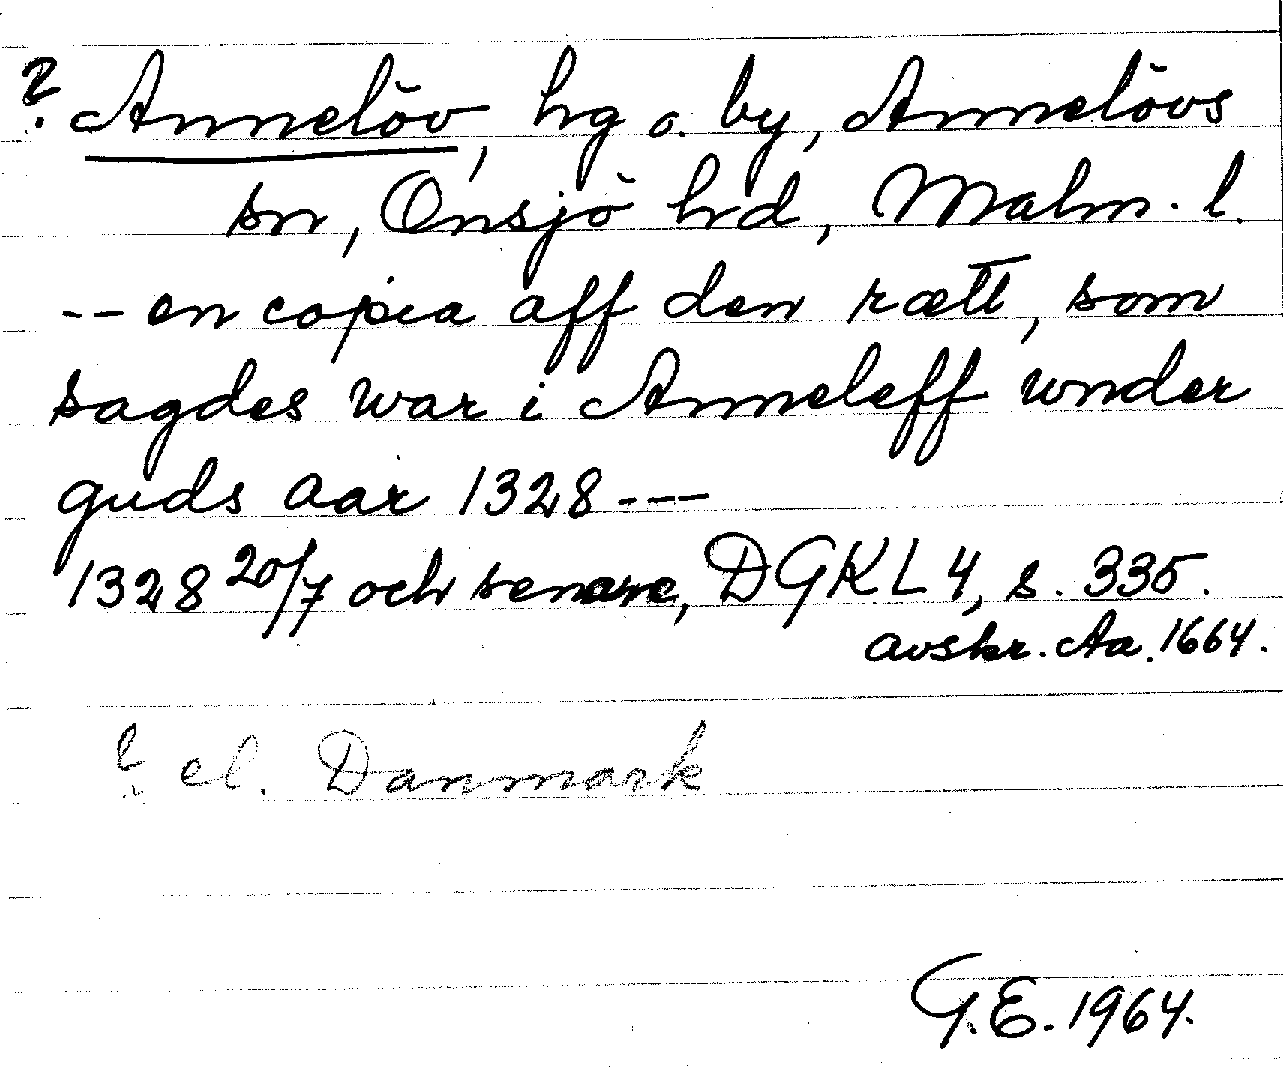 ? Annelöv, hg o. by, Annelövs
sn, Onsjö hrd, Malm. l.
-- en copia aff den rætt, som
sagdes war i Anneleff wnder
guds aar 1328 ---
1328 20/7 och senare, DGKL 4, s. 335.
avskr. Aa. 1664.
? el. Danmark
G.E. 1964.